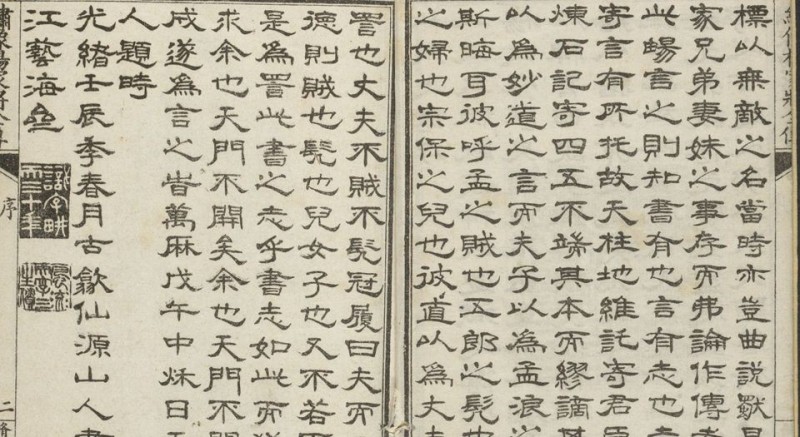 標以無敵之名當時亦豈曲說歟
家兄弟妻妹之事存而弗論作傳
此暢言之則知書有也言有志也
寄言有所托故天柱地維託寄君
煉石記寄四五不端其本而繆謫
以為妙道之言而夫子以為孟浪之
斯晦耳彼呼孟之賊也五郎之髡也
之婦也宗保之兒也彼道以為大
詈也丈夫不賊不髡冠履曰夫而
德則賊也髡也兒女子也又不若
是為詈此書之志乎書志如此而
求余也天門不開矣余也天門不
成遂為言之皆萬厤戊午中秋日
人題時
光緒壬辰季春月古歙仙源山人
江藝海壘
序
二